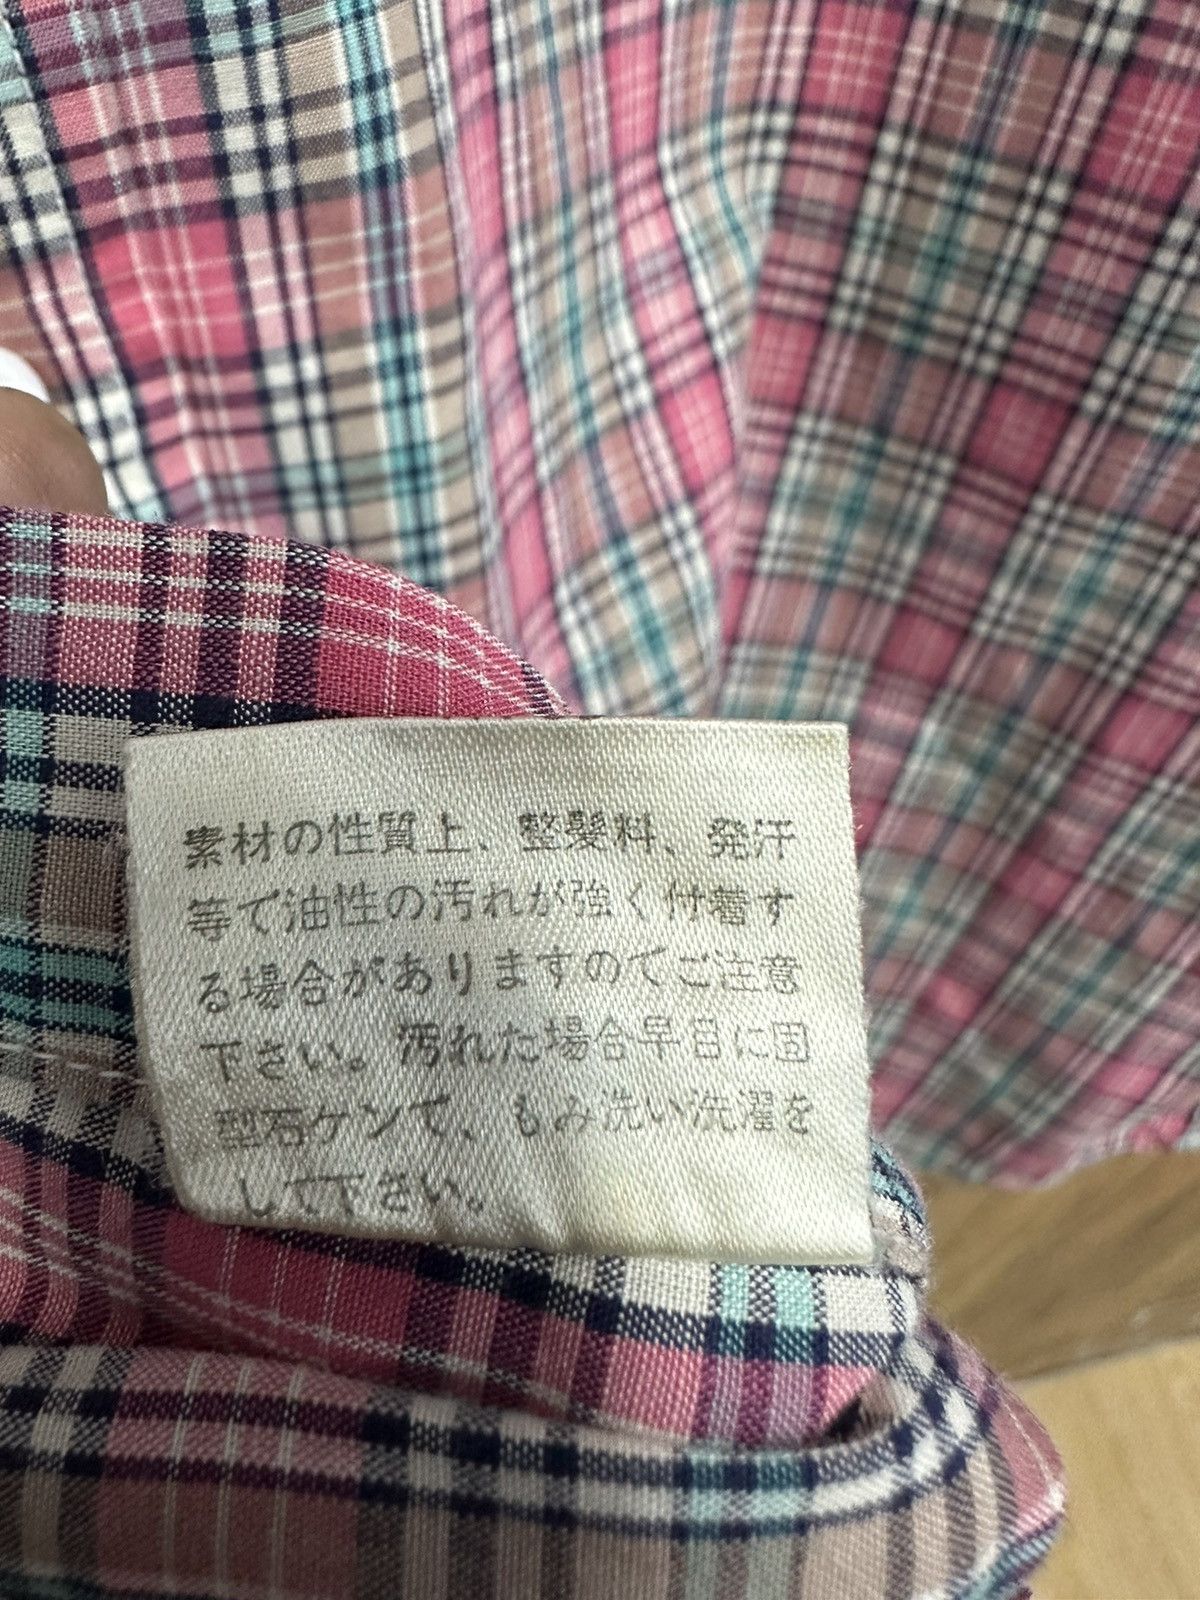 素材の性質上、整髪料、発汗
等で油性の汚れが強く付着す
る場合がありますのでご注意
下さい。汚れた場合早目に固
型石ケンで、もみ洗い洗濯を
して下さい。